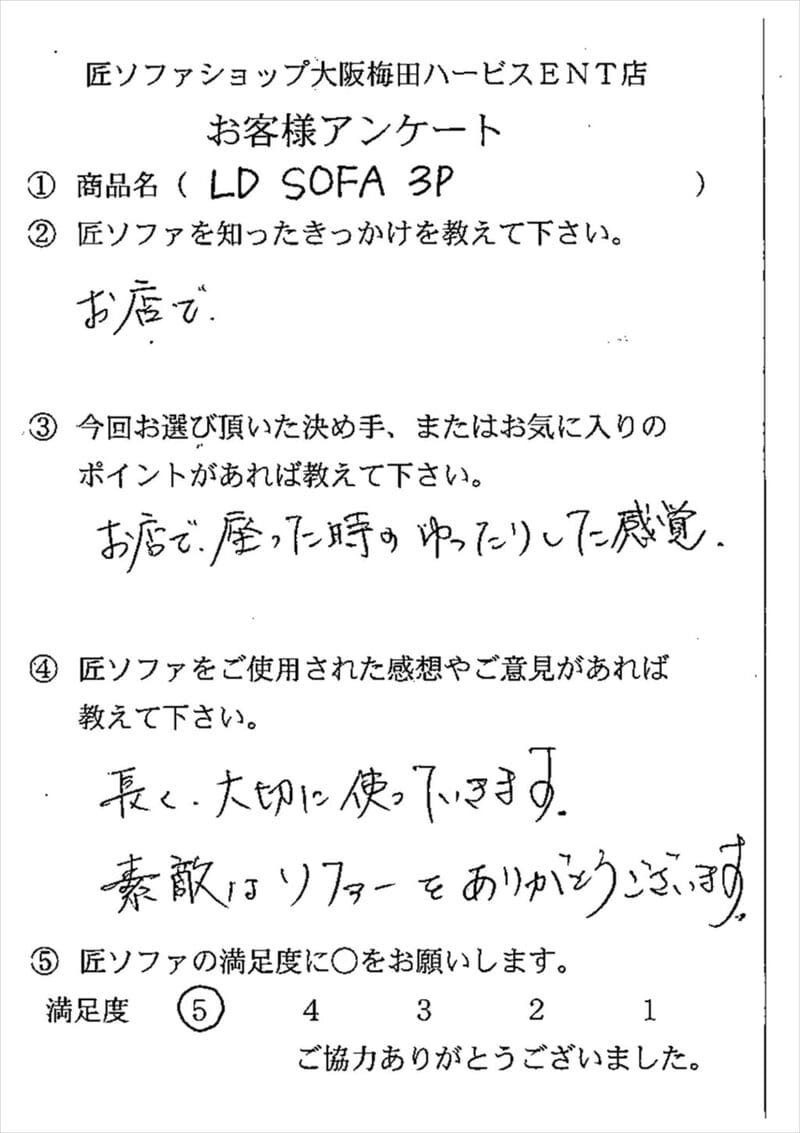 匠ソファショップ大阪梅田ハービスＥＮＴ店
お客様アンケート
① 商品名（ LD SOFA 3P ）
② 匠ソファを知ったきっかけを教えて下さい。
お店で.
③ 今回お選び頂いた決め手、またはお気に入りの
ポイントがあれば教えて下さい。
お店で.座った時の ゆったりした感覚.
④ 匠ソファをご使用された感想やご意見があれば
教えて下さい。
長く.大切に使っていきます.
素敵なソファーをありがとうございます。
⑤ 匠ソファの満足度に○をお願いします。
満足度 ⑤ 4 3 2 1
ご協力ありがとうございました。